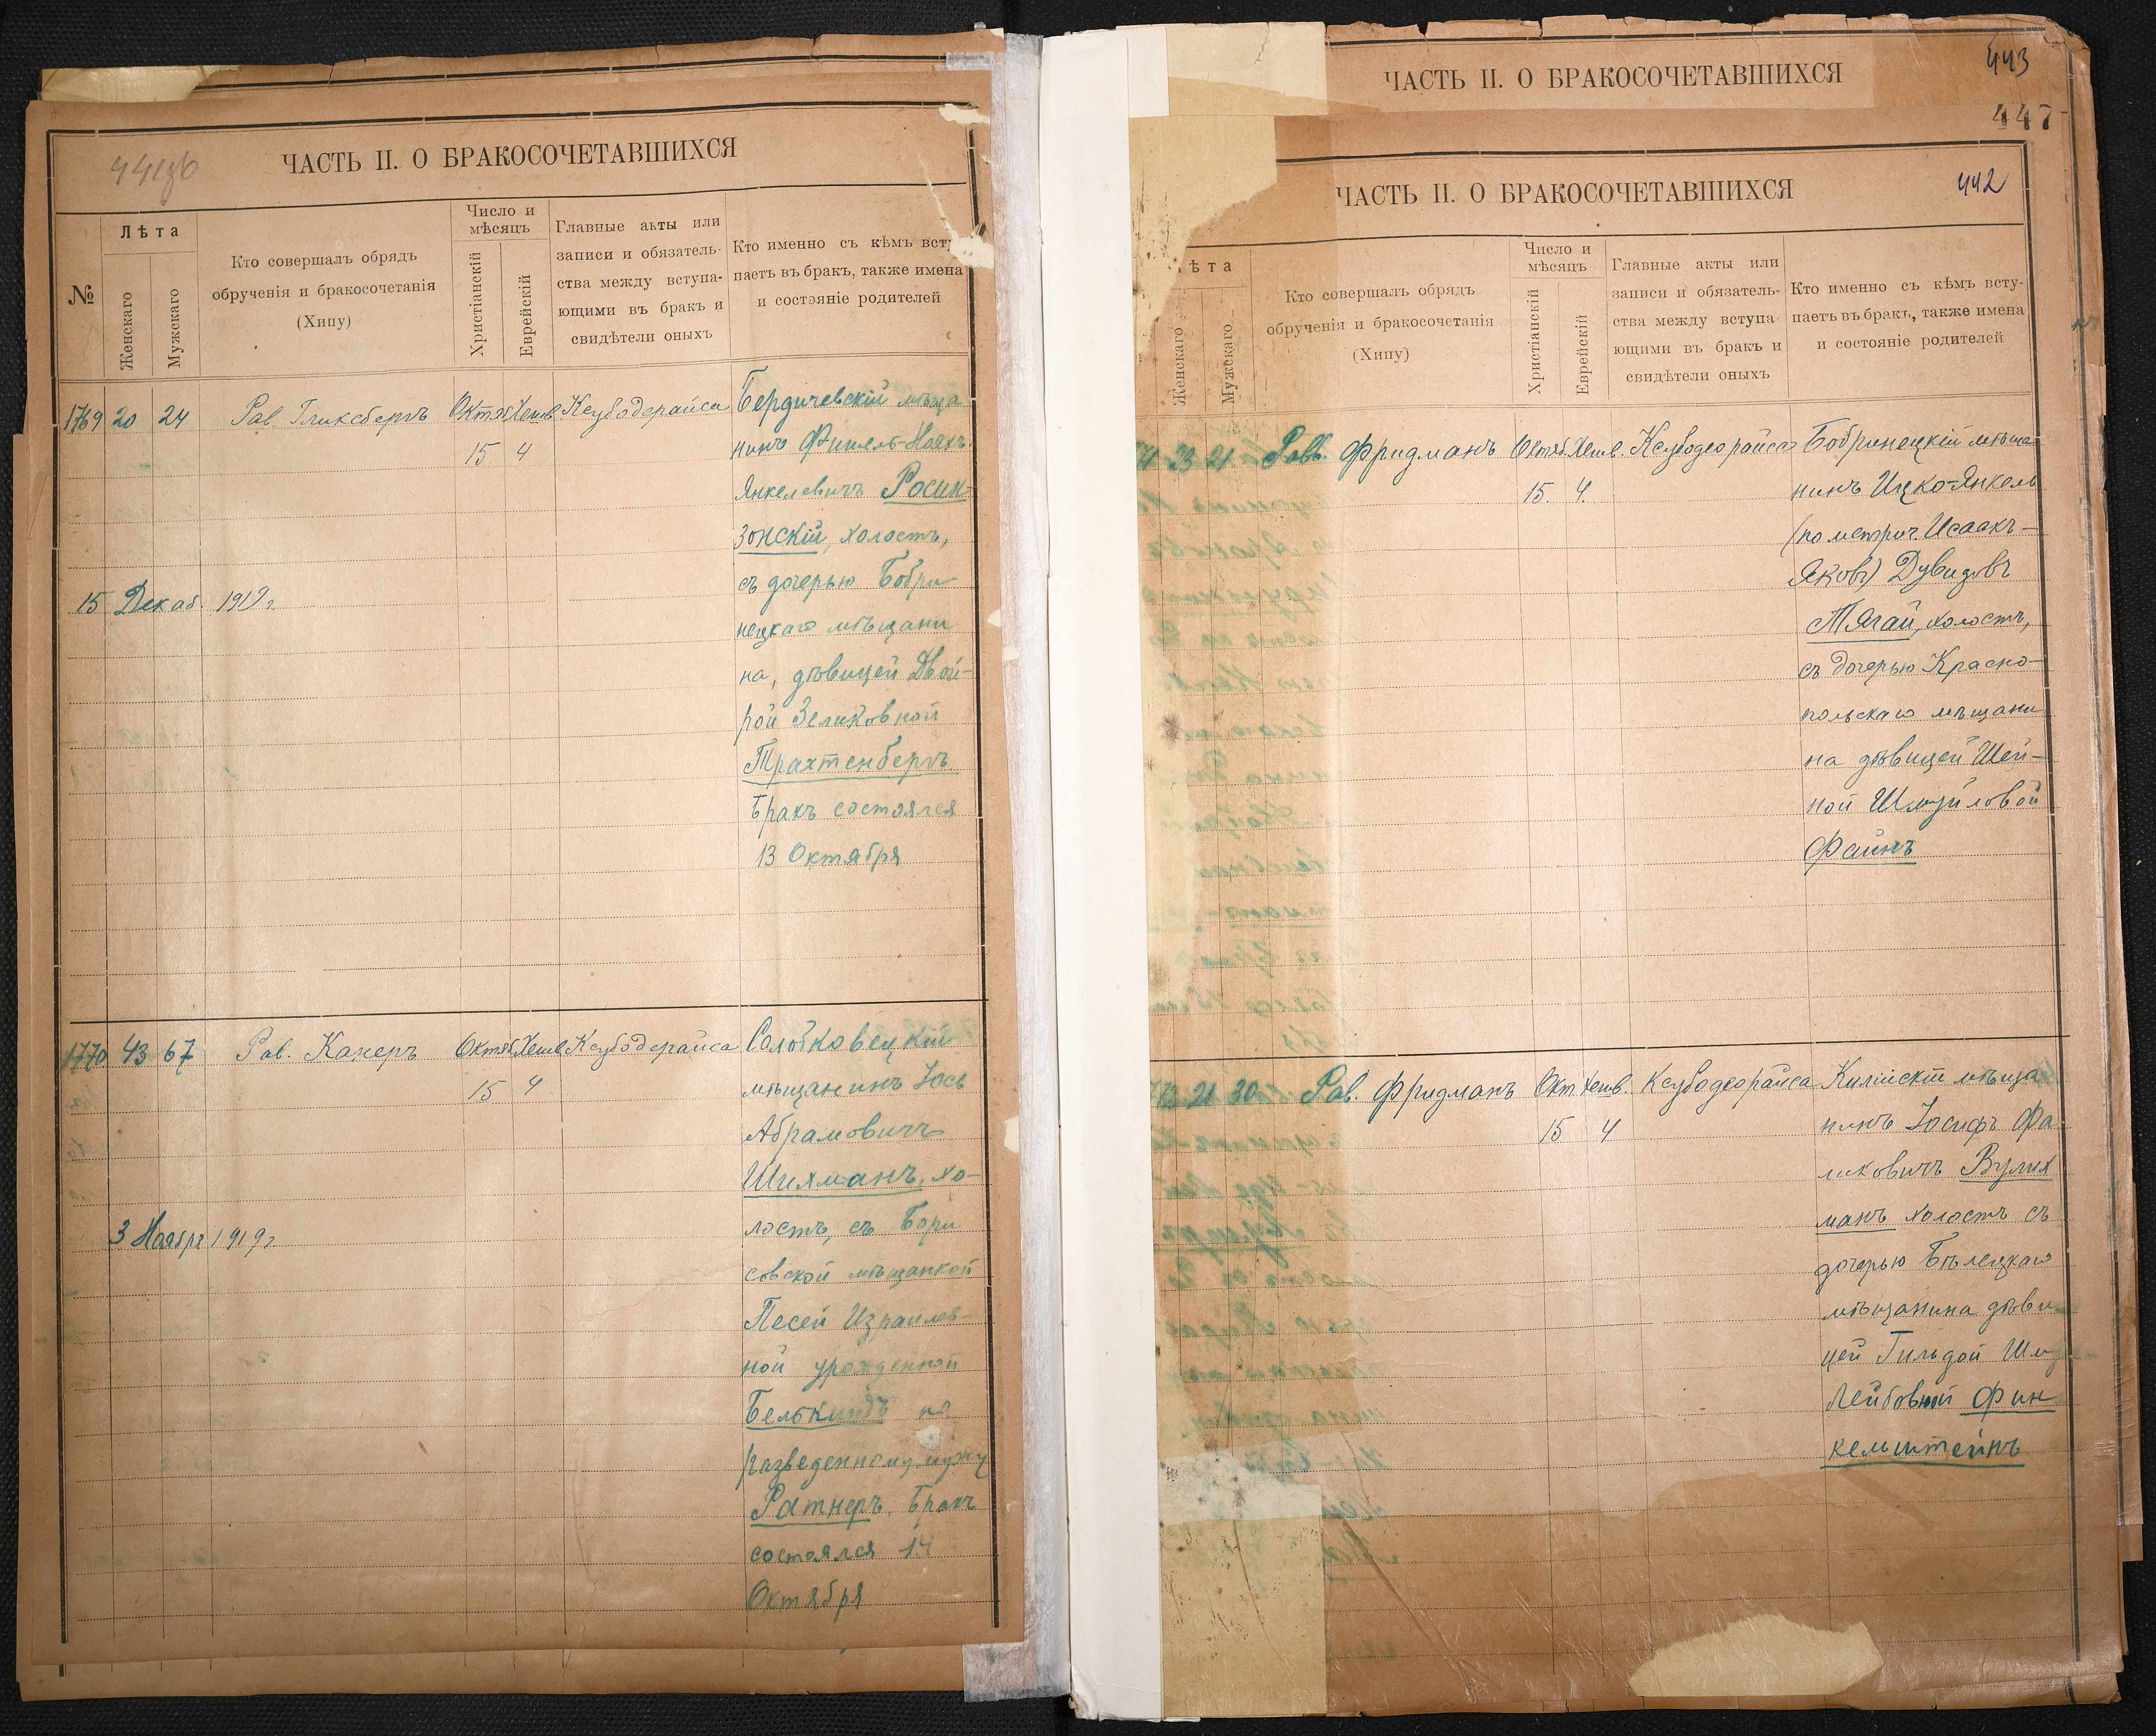 ЧАСТЬ II. О БРАКОСОЧЕТАВШИХСЯ
№
Лѣта
Женскаго
Мужскаго
Кто совершалъ обрядъ
обрученія и бракосочетанія
(Хипу)
Число и
мѣсяцъ
Христіанскій
Еврейскій
Главные акты или
записи и обязатель-
ства между вступа-
ющими въ бракъ и
свидѣтели оныхъ
Кто именно съ кѣмъ всту
паетъ въ бракъ, также имена
и состояніе родителей
1769 20 24 Рав. Гликсбергъ Октяб Хешв Ксубодерайса Бердичевскій мѣща
15 4 нинъ Фишель-Ноахъ
Янкелевичъ Росин-
зонскій, холостъ,
съ дочерью Бобри
15 Декаб. 1919 г.
нецкаго мѣщани
на, дѣвицей Двой-
рой Зеликовной
Трахтенбергъ
Бракъ состоялся
13 Октября
1770 43 67 Рав. Канеръ Октяб Хешв Ксубодерайса Солобковецкій
15 4 мѣщанинъ Іось
Абрамовичъ
Шихманъ, хо-
3 Ноября 1919 г.
лостъ, съ Бори
совской мѣщанкой
Песей Израилев-
ной урожденной
Белькиндъ по
разведенному мужу
Ратнеръ. Бракъ
состоялся 14
Октября
ЧАСТЬ II. О БРАКОСОЧЕТАВШИХСЯ
443
447
ЧАСТЬ II. О БРАКОСОЧЕТАВШИХСЯ
442
ѣта
Женскаго
Мужскаго
Кто совершалъ обрядъ
обрученія и бракосочетанія
(Хипу)
Число и
мѣсяцъ
Христіанскій
Еврейскій
Главные акты или
записи и обязатель-
ства между вступа
ющими въ бракъ и
свидѣтели оныхъ
Кто именно съ кѣмъ всту-
паетъ въ бракъ, также имена
и состояніе родителей
71 23 21 Равв. Фридманъ Октяб. Хешв. Ксубодеорайса Бобринецкій мѣща
15. 4. нинъ Ицко-Янкель
(по метрич. Исаакъ-
Яковъ) Дувидовъ
Тягай, холостъ,
съ дочерью Красно-
польскаго мѣщани
на дѣвицей Шей-
ной Шмуйловой
Файнъ
72 21 30 Рав. Фридманъ Окт. Хешв. Ксубодеорайса Килійскій мѣща
15 4 нинъ Іосифъ Фа
ликовичъ Вулих
манъ холостъ съ
дочерью Бѣлецкаго
мѣщанина дѣви
цей Гильдой Шм
Лейбовной Фин
кельштейнъ